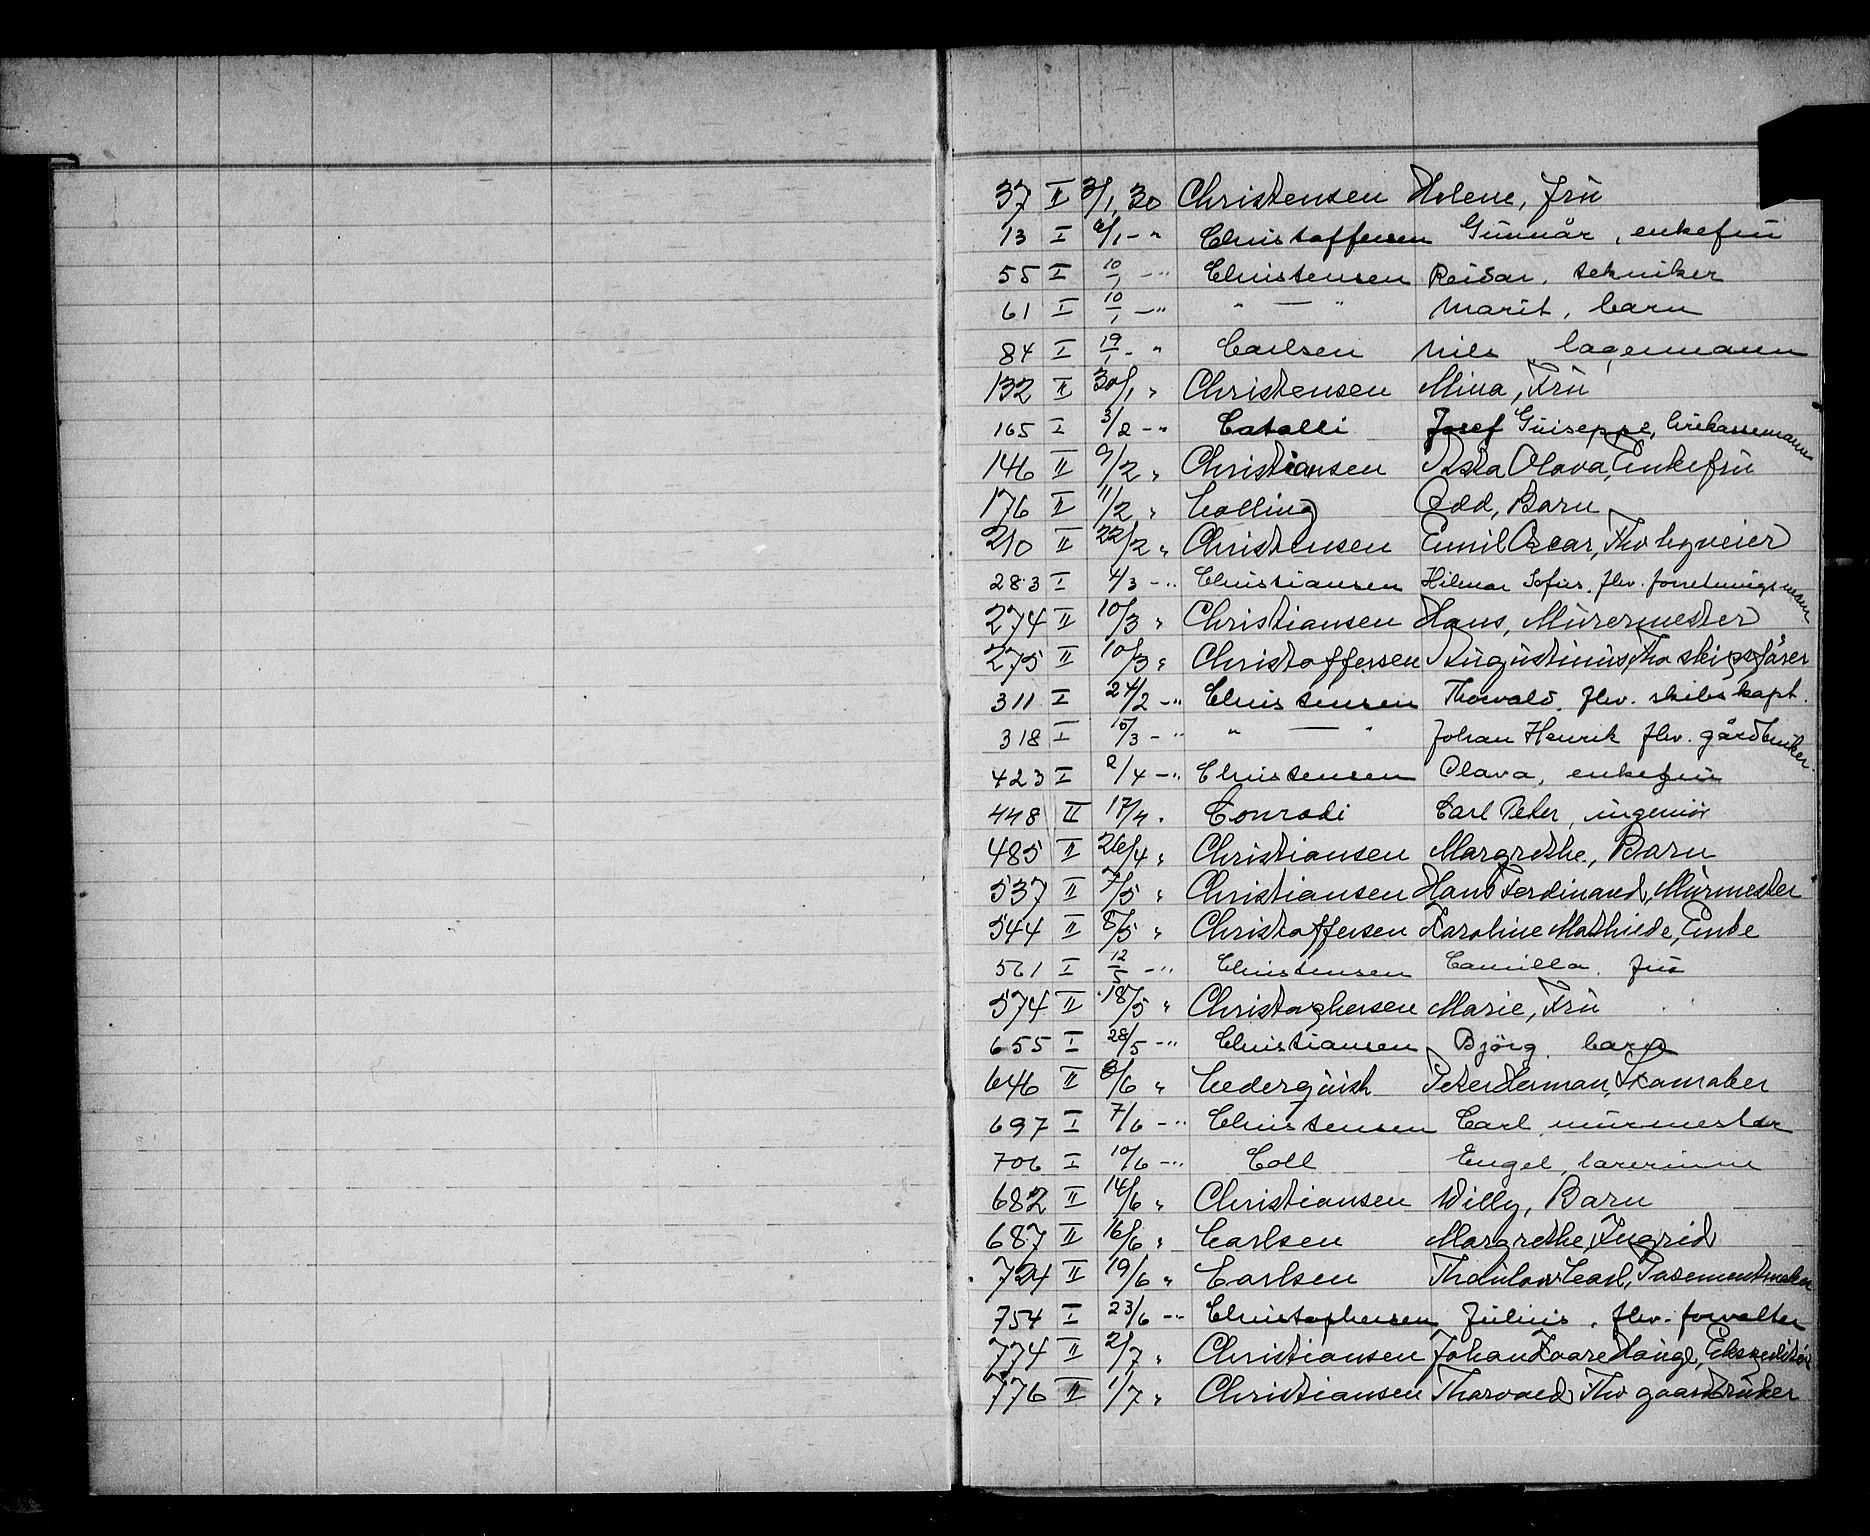 37 II 3/1, 30 Christensen Helene, Frü
13 I 6/1 - " Christoffersen Günnår, enkefrü
55 I 10/1 - " Christensen Reidar, tekniker
61 I 10/1 - " " — " Marit, barn
84 I 19/1 - " Carlsen Nils lagermann
132 II 30/1 " Christensen Mina, Frü
165 I 3/2 - " Catalli Josef Güiseppe, lirekassemann
146 II 9/2 " Christiansen Asta Olava, Enkefrü
176 I 11/2 " Colling Odd, Barn
210 II 22/2 " Christensen Emil Oscar, Fhv byveier
283 I 4/3 - " Christiansen Hilmar Sofus, fhv. forretningsmann
274 II 10/3 " Christiansen Hans, Mürermester
275 II 10/3 " Christoffersen Augüstinüs, Fhv skipsfører
311 I 24/2 - " Christensen Thorvald, fhv. skibskapt.
318 I 15/3 - " " — " Johan Henrik fhv. gårdbrüker.
423 I 2/4 - " Christensen Olava, enkefrü
448 II 17/4 " Conradi Carl Peter, ingeniør
485 II 26/4 " Christiansen Margrethe, Barn
537 II 7/5 " Christiansen Hans Ferdinand, Mürmester
544 II 8/5 " Christoffersen Karoline Mathilde, Enke
561 I 12/5 - " Christensen Camilla, frü
574 II 18/5 " Christophersen Marie, Frü
655 I 28/5 - " Christiansen Bjørg, barn
646 II 3/6 " Cederqüist Peter Herman, Skomaker
697 I 7/6 - " Christensen Carl, mürmester
706 I 10/6 - " Coll Engel, lærerinne
682 II 14/6 " Christiansen Willy, Barn
687 II 16/6 " Carlsen Margrethe Ingrid
724 II 19/6 " Carlsen Thoülow Carl, Pasementmaker
754 I 23/6 - " Christophersen Jülius, fhv. forvalter
774 II 2/7 " Christiansen Johan Kaare Haügl, Ekspeditør
776 II 1/7 " Christiansen Thorvald, Fhv gaardbrüker